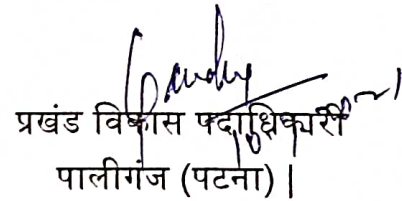 प्रखंड विकास पदाधिकारी
पालीगंज (पटना) |